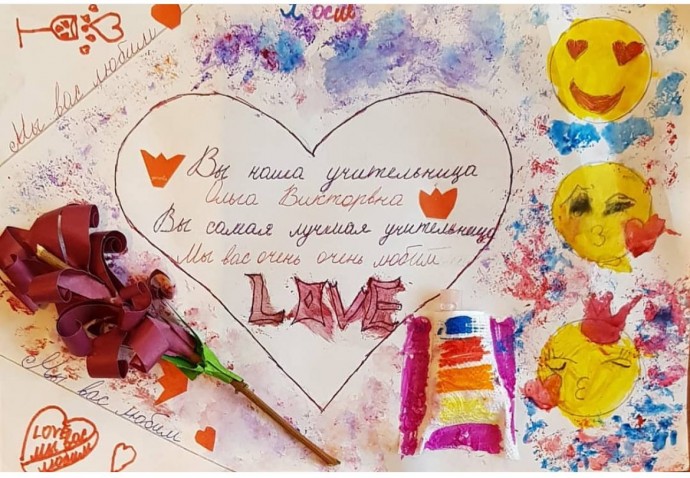 Мы вас любим
Вы наша учительница
Ольга Викторвна
Вы самая лучшая учительница
Мы вас очень очень любим...
LOVE
Мы вас любим
LOVE
МЫ ВАС
ЛЮБИМ